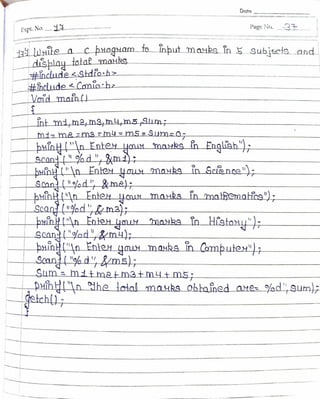 Date
Expt. No. 17
Page No. 37
17) Write a C program to input marks in 5 subjects and
display total marks
#include <stdio.h>
#include <conio.h>
Void main()
{
int m1, m2, m3, m4, m5, sum;
m1=m2=m3=m4=m5=sum=0;
printf("\n Enter your marks in English");
scanf("%d", &m1);
printf("\n Enter your marks in Science");
scanf("%d", &m2);
printf("\n Enter your marks in mathematics");
scanf("%d", &m3);
printf("\n Enter your marks in History");
scanf("%d", &m4);
printf("\n Enter your marks in Computer");
scanf("%d", &m5);
Sum = m1+m2+m3+m4+m5;
printf("\n The total marks obtained are= %d", sum);
getch();
}